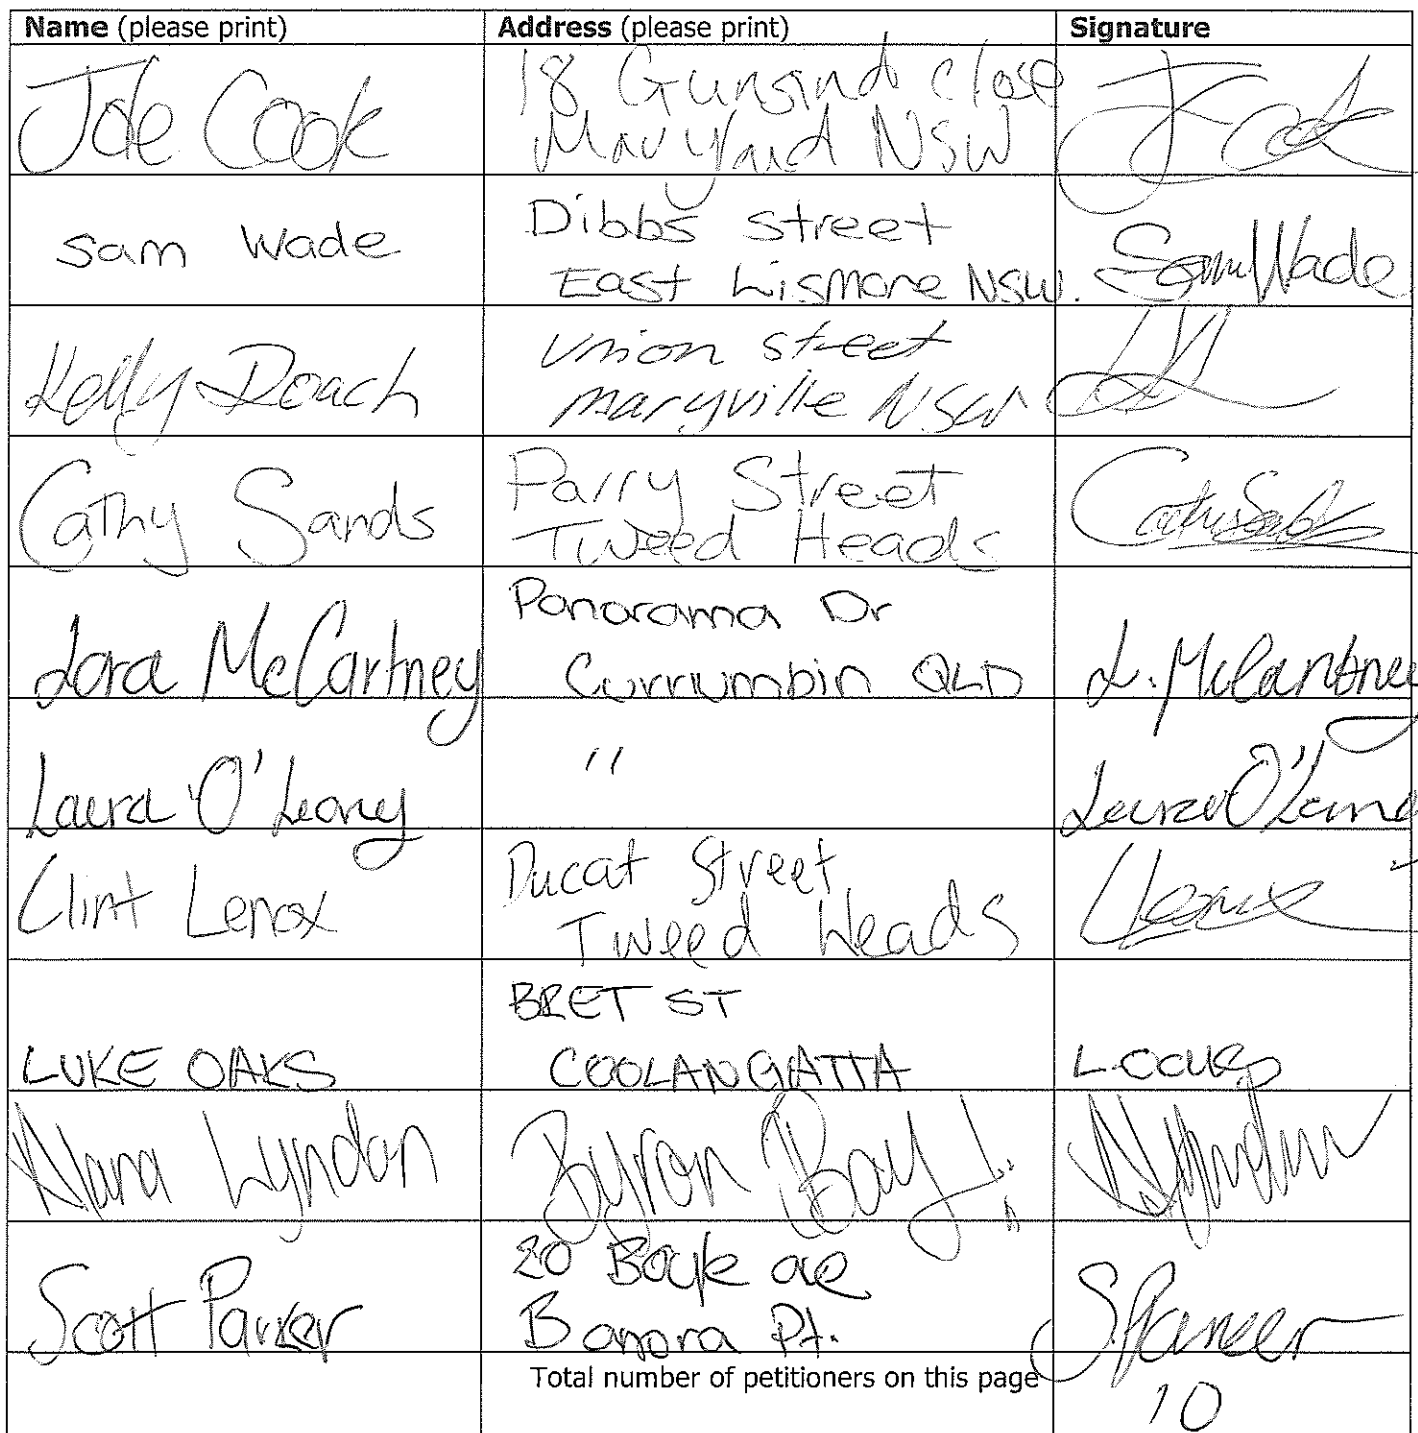 Name (please print) Address (please print) Signature
Joe Cook
18 Gunsind close
Maryland NSW
Sam Wade
Dibbs street
East Lismore NSW.
Sam Wade
Kelly Roach
Union street
maryville NSW
Cathy Sands
Parry Street
Tweed Heads
Lara McCartney
Panorama Dr
Currumbin QLD
L. McCartney
Laura O'Leary
"
Clint Lenox
Ducat Street
Tweed Heads
LUKE OAKS
BRET ST
COOLANGATTA
Alana Lyndon
Byron Bay!
Scott Parker
20
Banora Pt.
Total number of petitioners on this page
10